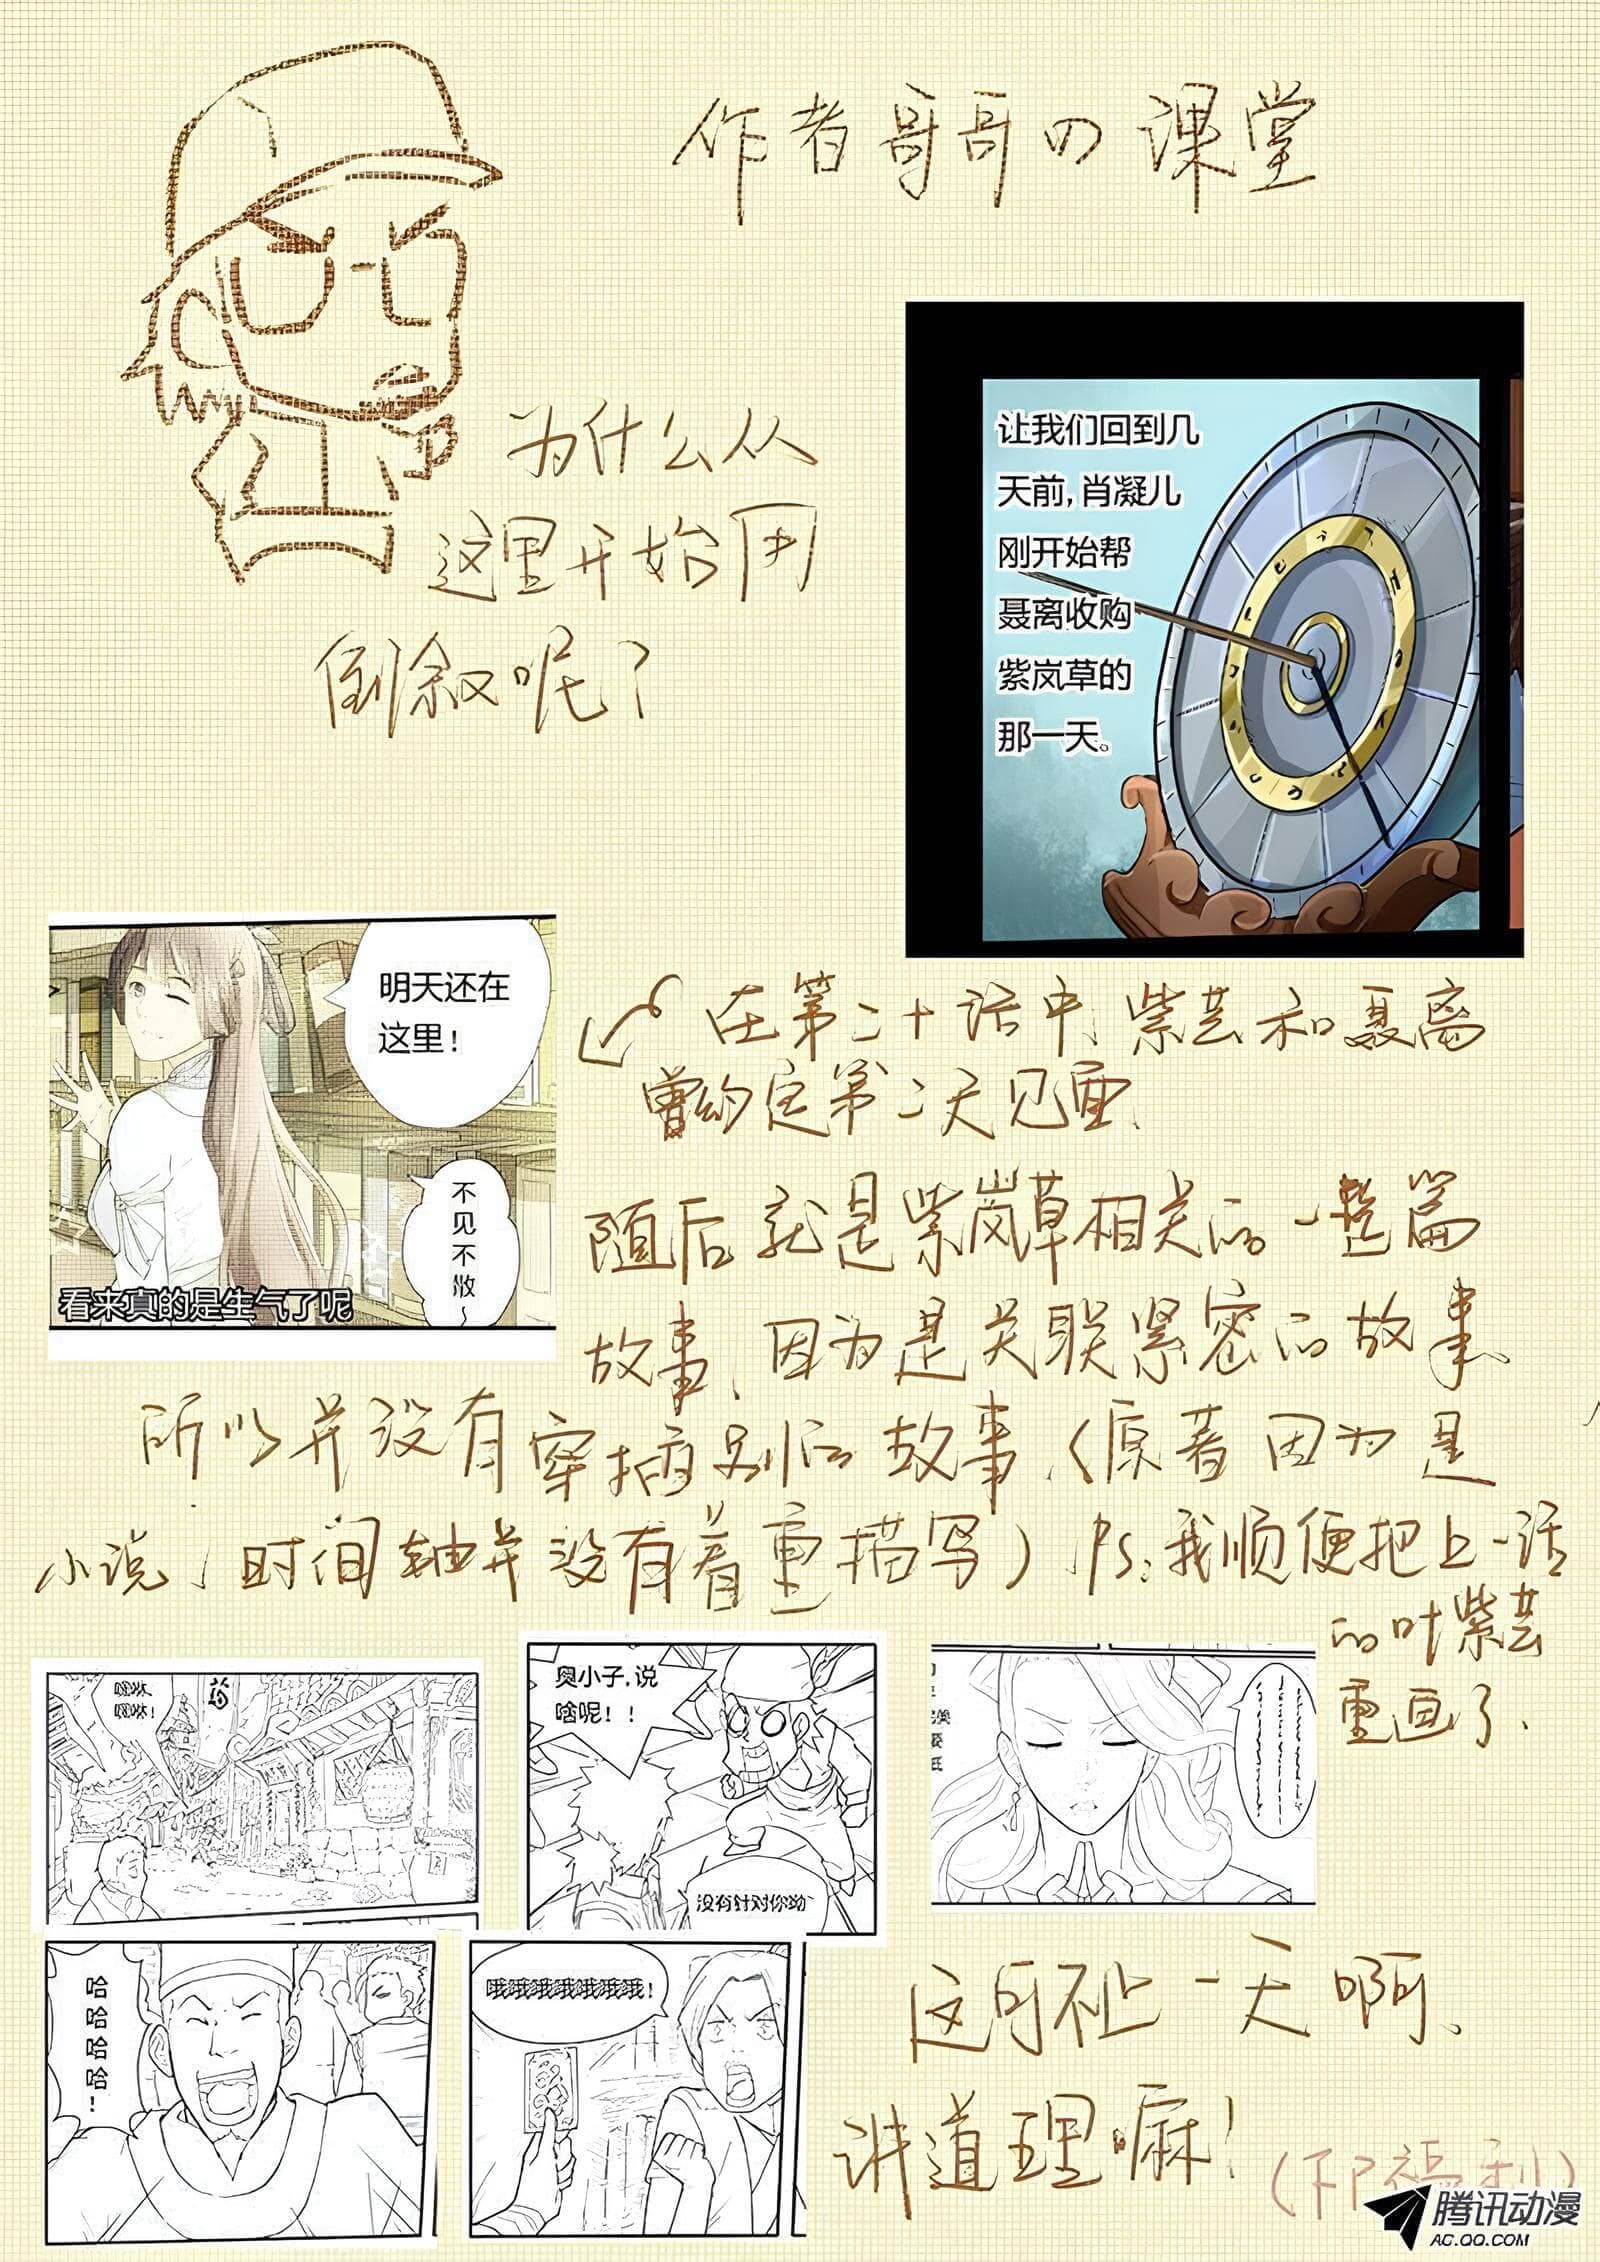 作者哥哥の课堂
为什么从
这里开始用
倒叙呢？
让我们回到几
天前,肖凝儿
刚开始帮
聂离收购
紫岚草的
那一天。
明天还在
这里！
不见不散~
看来真的是生气了呢
在第二十话中,紫芸和聂离
曾约定第二天见面.
随后就是紫岚草相关的一整篇
故事,因为是关联紧密的故事、
所以并没有穿插别的故事.(原著因为是
小说,时间轴并没有着重描写).Ps:我顺便把上一话
的叶紫芸
重画了.
药
臭小子,说
啥呢！！
没有针对你呦~
哈哈哈哈！
哦哦哦哦哦哦哦！
这何止一天啊、
讲道理嘛！
腾讯动漫
AC.QQ.COM